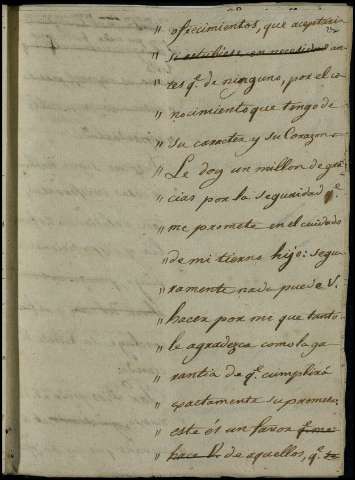 " ofrecimientos, que aceptari
" si estubiese en necesidad an
" tes q.e de ninguno, por el co
" nocimiento que tengo de
" su caracter y su Corazon.
" Le doy un millon de gra
" cias por la seguridad q.e
" me promete en el cuidado
" de mi tierno hijo: segu
" ramente nada puede V.
" hacer por mi que tanto
" le agradezca como la ga
" rantia de q.e cumplirá
" exactamente su promesa:
" este és un favor q.e me
" hace V. de aquellos, q.e